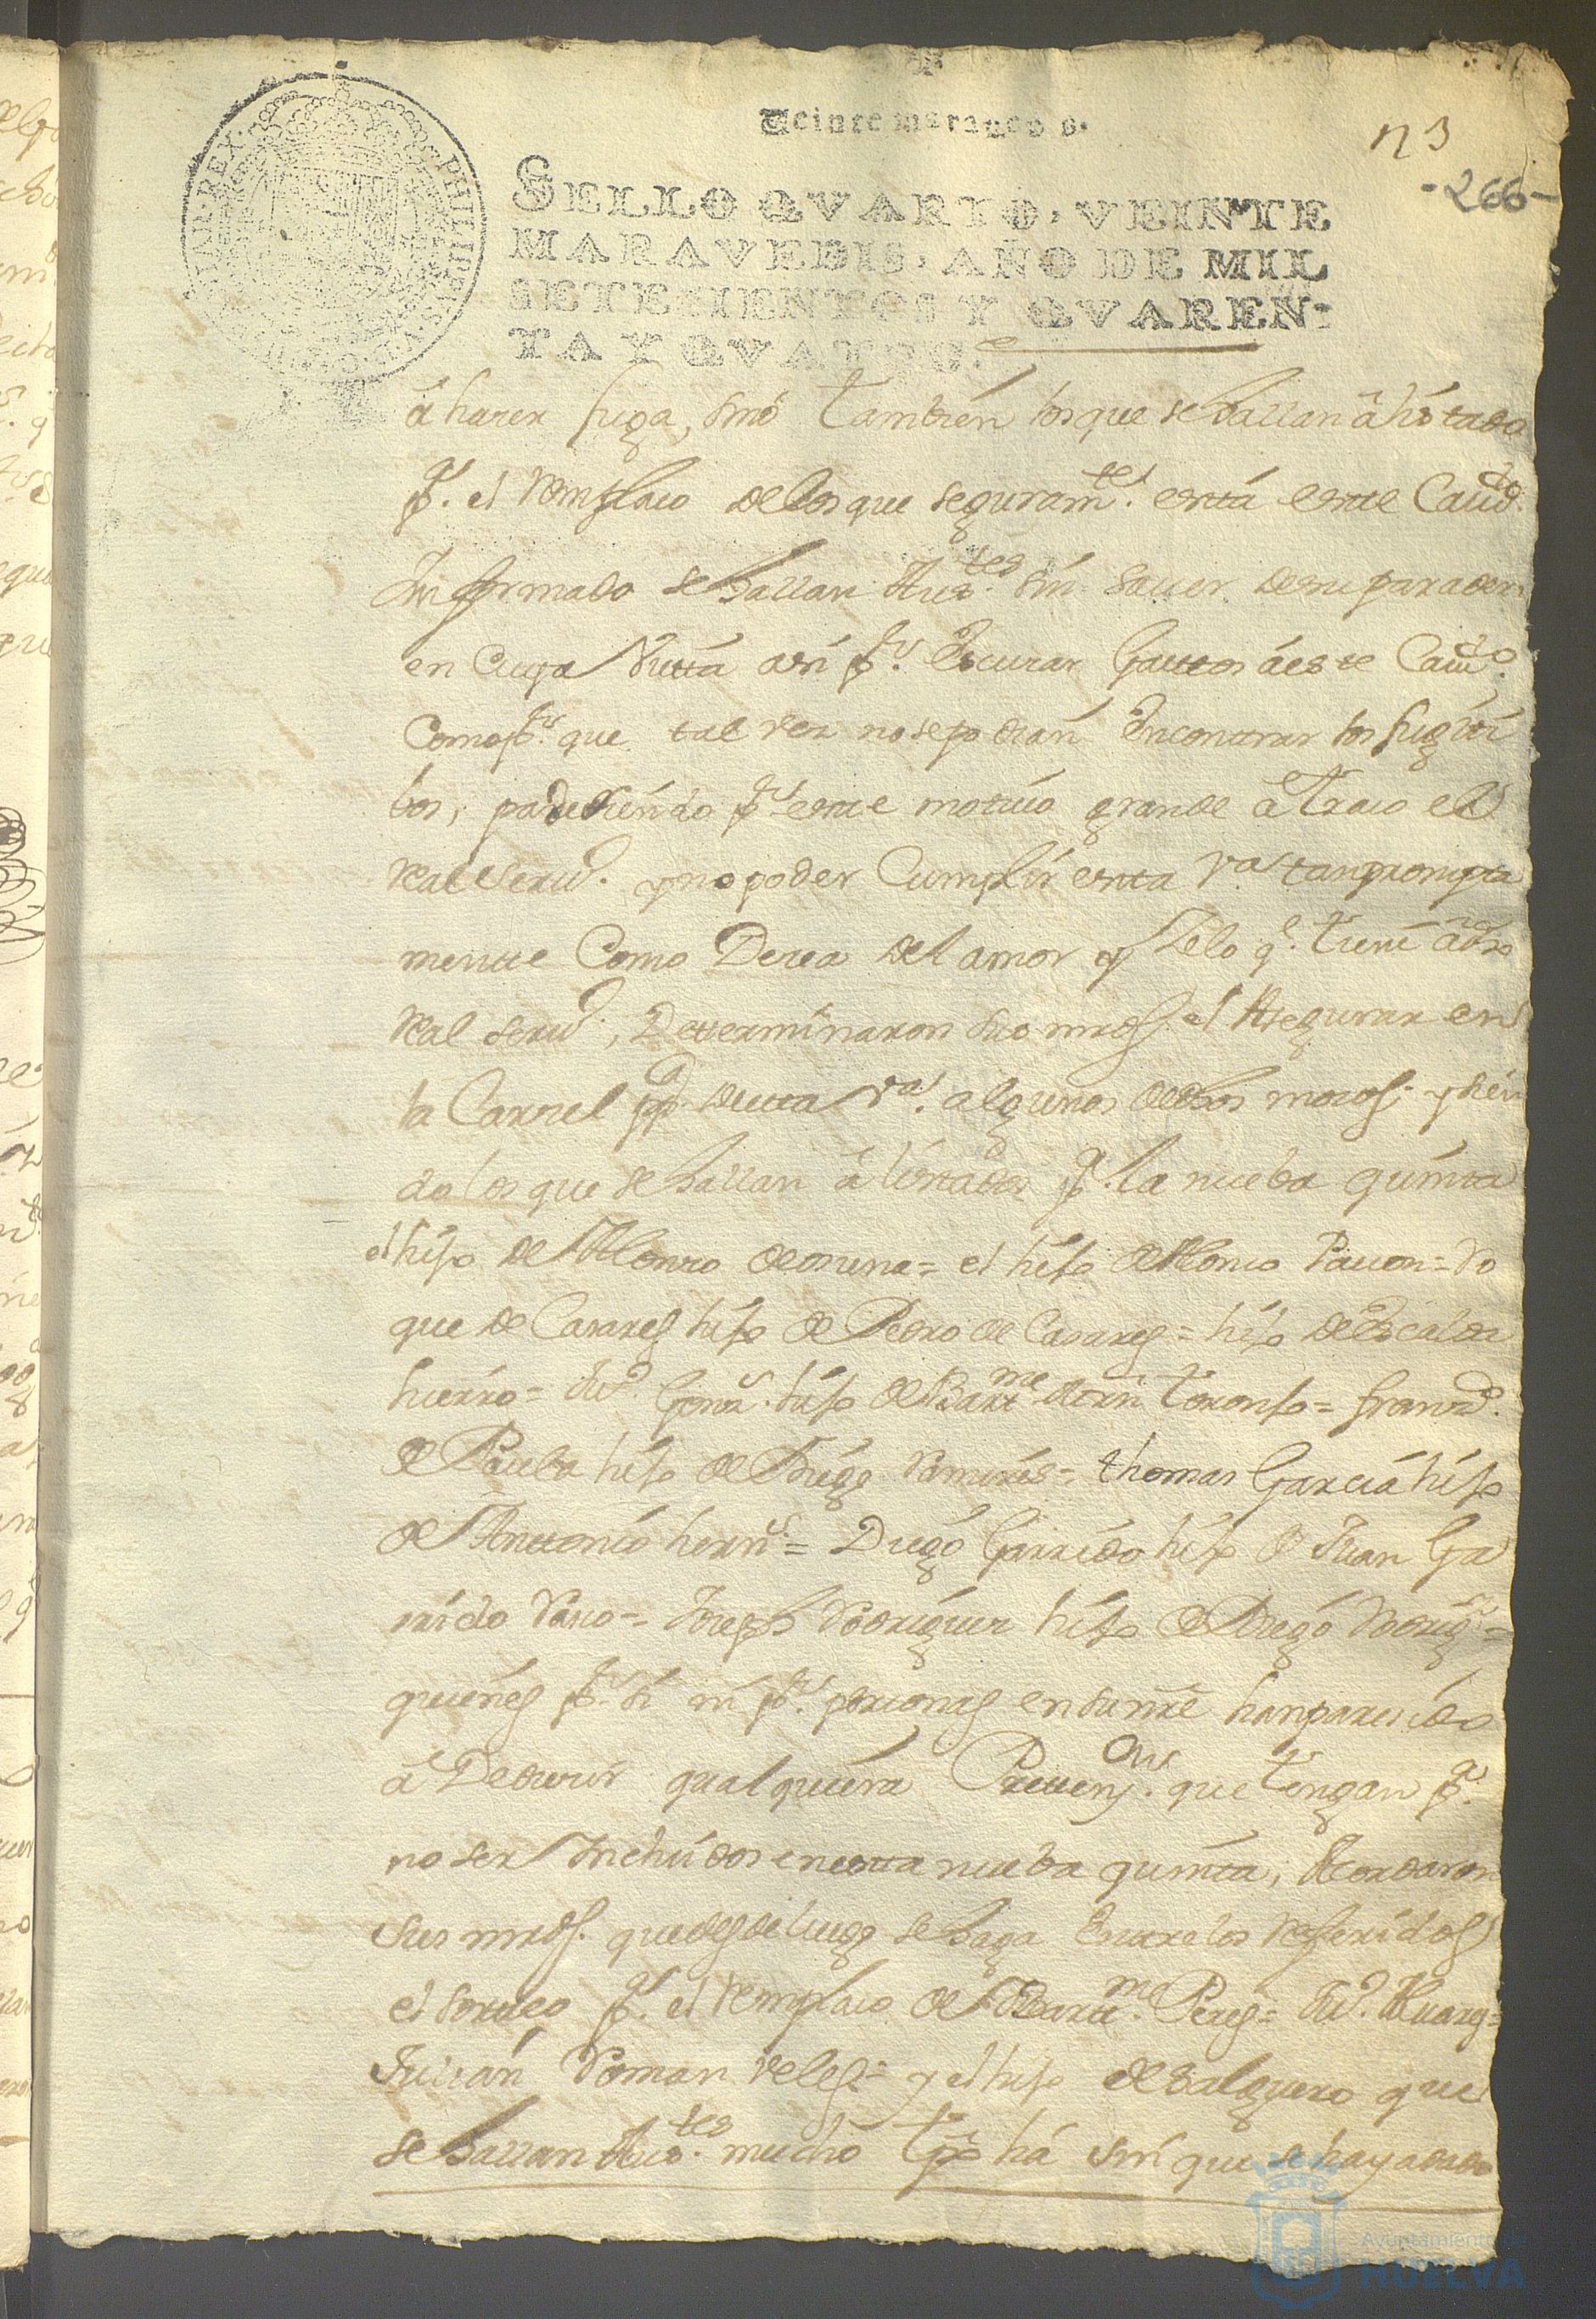 Veinte maravedis.
n 3
-266-
SELLO QVARTO, VEINTE
MARAVEDIS, AÑO DE MIL
SETECIENTOS Y QVAREN-
TA Y QVATRO.
â hazer fuga, sino tambien los que se hallan âlistado
pª. el Remplaso delos que seguramtte. está este Cavdº.
Informado se hallan Austes. sin saver desu paradero
en Cuya Vistta asi pr. Escusar Gasttos áeste Cavdº.
Como pr. que tal vez nose podran Encontrar los fugiti
bos, padesiendo pr este motivo grande âtraso el
Real Servº. y no poder Cumplir esta Vª tanprompta
mente Como Desea del amor y Zelo q. tiene â dho
Real servº, Determinaron sus mrds. el Asegurar en
la Carsel pp.ca destta Vª. algunos dedhos mosos. y sien
do los que se hallan âlistados pª. la nueba quinta
el hijo de Alonso deosuna= el hijo de Alonso Pavon= Ro
que de Casares hijo de Pedro de Casares= hijo de Escalda
hierro= Juº. Gonz. hijo de Bartme Mrn Toronjo= Franco.
de Paula hijo de Diego Ramires=. thomas Garcia hijo
de Anttonio hernz.= Diego Garrido hijo de Juan Ga
rrido Vaso= Joseph Rodriguez hijo de Diego Rodrigz=
quienes pr. si ni pr. personas en su nre han paresido
â Dedusir qualquiera Prettensn. que tengan pª.
no ser Incluidos enestta nueba quinta, Acordaron
sus mrds. que desde luego se haga Entre los Referidos
el sorteo pª. el Remplaso de Bartme. Peres= Juº. Alvares=
Julian Roman Veles= y el hijo de salguero que
se hallan Austes. mucho tpo há sin que se haya dado
Ayuntamiento de
HUELVA